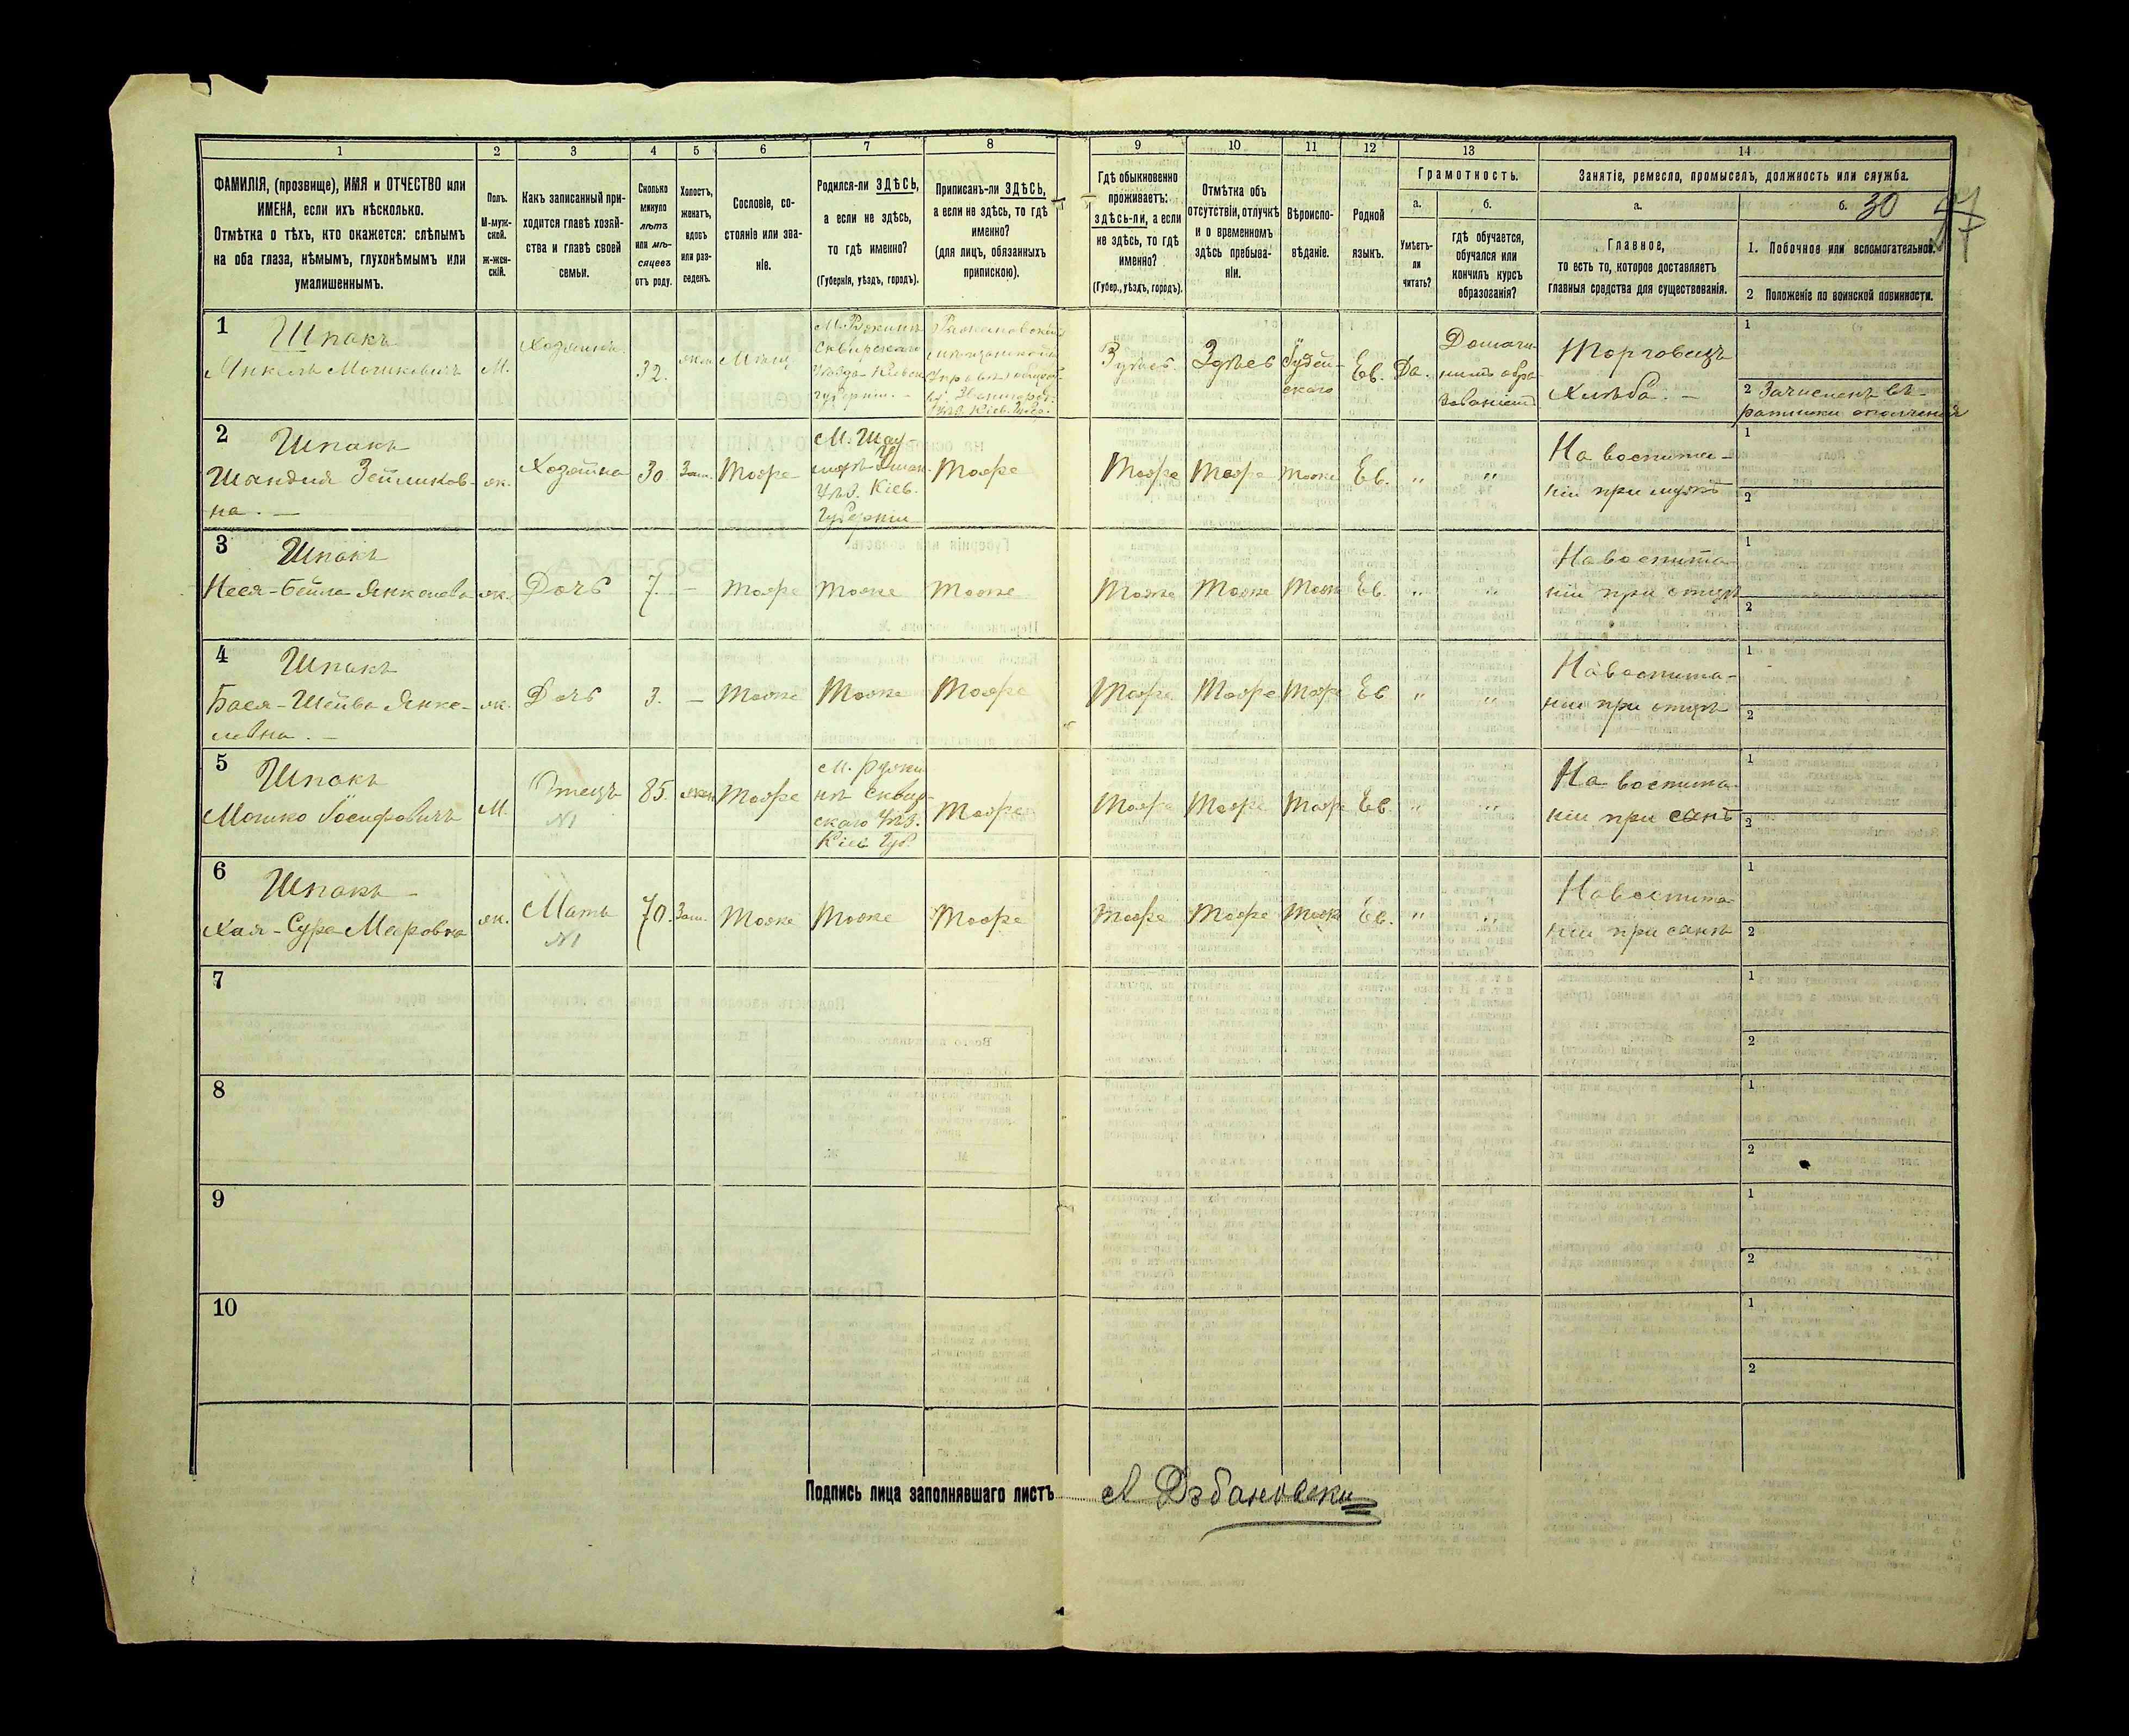 1 2 3 4 5 6 7 8 9 10 11 12 13 14
ФАМИЛІЯ, (прозвище), ИМЯ и ОТЧЕСТВО или
ИМЕНА, если ихъ нѣсколько.
Отмѣтка о тѣхъ, кто окажется: слѣпымъ
на оба глаза, нѣмымъ, глухонѣмымъ или
умалишеннымъ.
Полъ.
М-муж-
ской.
ж-жен-
скій.
Какъ записанный при-
ходится главѣ хозяй-
ства и главѣ своей
семьи.
Сколько
минуло
лѣтъ
или мѣ-
сяцевъ
отъ роду.
Холостъ,
женатъ,
вдовъ
или раз-
веденъ.
Сословіе, со-
стояніе или зва-
ніе.
Родился-ли ЗДѢСЬ,
а если не здѣсь,
то гдѣ именно?
(Губернія, уѣздъ, городъ).
Приписанъ-ли ЗДѢСЬ,
а если не здѣсь, то гдѣ
именно?
(для лицъ, обязанныхъ
припискою).
Гдѣ обыкновенно
проживаетъ:
здѣсь-ли, а если
не здѣсь, то гдѣ
именно?
(Губер., уѣздъ, городъ).
Отмѣтка объ
отсутствіи, отлучкѣ
и о временномъ
здѣсь пребыва-
ніи.
Вѣроиспо-
вѣданіе.
Родной
языкъ.
Грамотность.
а.
Умѣетъ-
ли
читать?
б.
гдѣ обучается,
обучался или
кончилъ курсъ
образованія?
Занятіе, ремесло, промыселъ, должность или служба.
а.
Главное,
то есть то, которое доставляетъ
главныя средства для существованія.
б. 30
1. Побочное или вспомогательное.
2 Положеніе по воинской повинности.
1 Шпакъ
Янкель Мошковичъ
М.
Хозяинъ
32.
жен.
Мѣщ.
М. Ружинъ
Сквирскаго
Уѣзда Кіевск.
губерніи. –
Здѣсь
Іудей-
скаго
Ев.
Да.
Домаш-
нимъ обра-
зованіемъ
Торговецъ
Хлѣба. –
1
2 Зачисленъ въ
ратники ополченія
2 Шпакъ
Шандля Зейликов-
на. –
ж.
Хозяйка
30
Зам.
Тоже
Уѣз. Кіев.
Губерніи
Тоже
Тоже
Тоже
Тоже
Ев.
„
„
На воспита-
ніи при мужѣ
1
2
3 Шпакъ
Неся-Бейла Янкелевн
ж.
Дочь
7.
–
Тоже
Тоже
Тоже
Тоже
Тоже
Тоже
Ев.
„
„
На воспита-
ніи при отцѣ
1
2
4 Шпакъ
Бася-Шейва Янке-
левна. –
ж.
Дочь
3.
–
Тоже
Тоже
Тоже
Тоже
Тоже
Тоже
Ев
„
„
На воспита-
ніи при отцѣ
1
2
5 Шпакъ
Мошко Іосифовичъ
М.
Отецъ
N1
85.
жен.
Тоже
М. Ружи
нѣ Сквир-
скаго Уѣз.
Кіев. Губ.
Тоже
Тоже
Тоже
Тоже
Ев.
„
„
На воспита-
ніи при сынѣ
1
2
6 Шпакъ –
Хая-Сура Меровна
ж.
Мать
N1
70.
Зам.
Тоже
Тоже
Тоже
Тоже
Тоже
Тоже
Ев.
„
„
На воспита-
ніи при сынѣ
1
2
7
1
2
8
1
2
9
1
2
10
1
2
Подпись лица заполнявшаго листъ